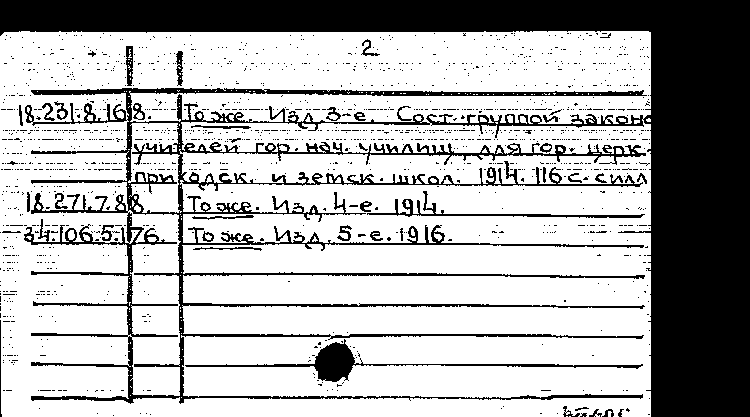 2
18.231.8.168. То же. Изд. 3-е. Сост. группой законо
учителей гор. нач. училищ, для гор. церк.-
приходск. и земск. школ. 1914. 116 с. с илл
18.271.7.88. То же. Изд. 4-е. 1914.
34.106.5.176. То же. Изд. 5-е. 1916.